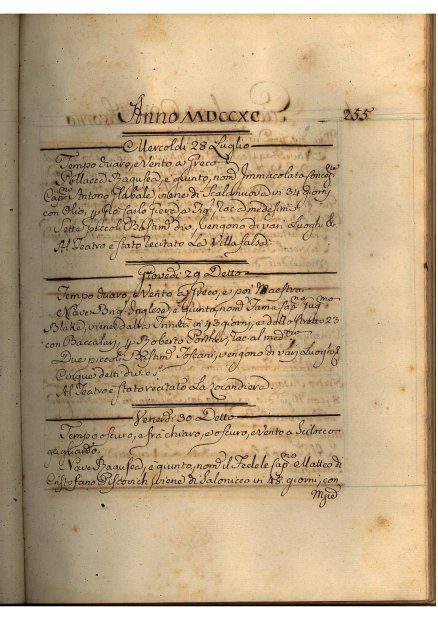 Anno MDCCXC. 255
Mercoldì 28 Luglio
Tempo chiaro, e Vento a Greco
Pollacca Ragusea, è giunto, nomᵃ Immacolata Concezⁿᵉ
Capⁿᵒ Antonio viene di Scalanuova in 34 giorni
con Olio, 4 Carlo racᵃ medesimi
Sette piccoli Bastimᵗⁱ diversi, vengono di vari Luoghi &
Al Teatro è stato recitato La Villa
Giovedì 29 Detto
Tempo chiaro, e Vento a Greco, e poi Maestro.
Nave Brigⁿᵒ Inglese è giunto, nomᵃ Fama Capⁿᵒ
Blake, viene dalla in 43 giorni, e dallo stretto 23
con Baccalari, 4 Roberto Porther, rac. al medᵐᵒ
Due piccoli Bastimᵗⁱ Toscani, vengono di vari Luoghi &
Cinque detti
Al Teatro è stato recitato la Locandiera
Venerdì 30 Detto
Tempo oscuro, e frà chiaro, e oscuro, e Vento a Scilocco
gagliardo.
Nave Ragusea, è giunto, nomᵃ il Fedele Capⁿᵒ Matteo di
Cristofano viene di Salonicco in 45 giorni, con